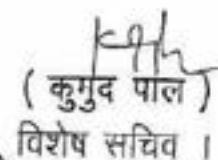 ( कुगुद पाल )
विशेष सचिव ।